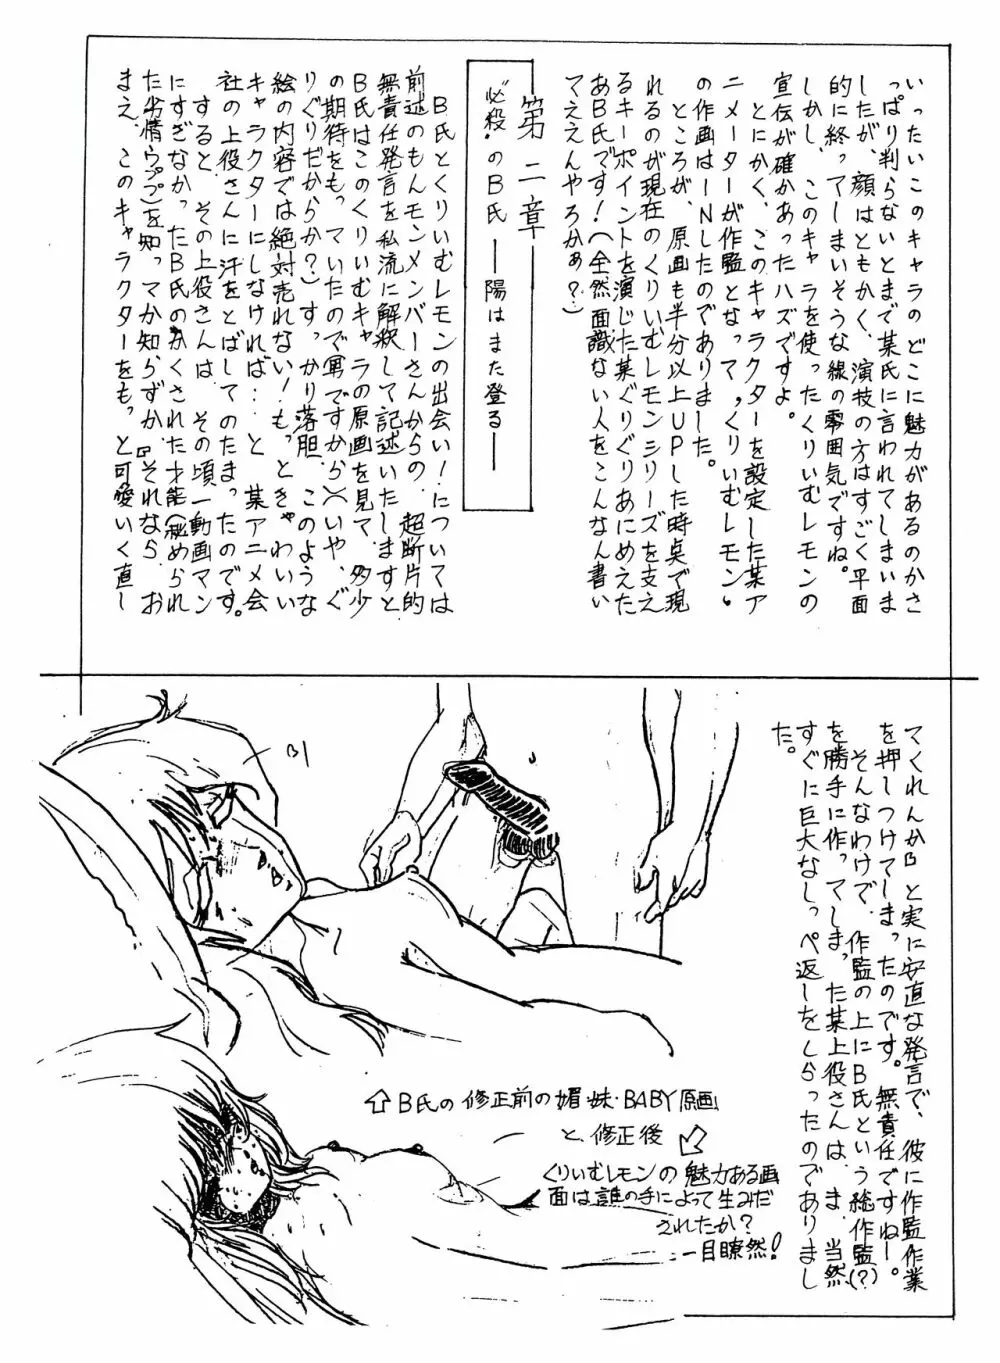 いったいこのキャラのどこに魅力があるのかさ
っぱり判らないとまで某氏に言われてしまいま
したが、顔はともかく、演技の方はすごく平面
的に終ってしまいそうな線の雰囲気ですね。
しかし、このキャラを使ったくりいむレモンの
宣伝が確かあったハズですよ。
とにかく、このキャラクターを設定した某ア
ニメーターが作監となって、くりいむレモン
の作画はINしたのでありました。
ところが、原画も半分以上UPした時点で現
れるのが現在のくりいむレモンシリーズを支え
るキーポイントを演じた某ぐりぐりあにめえた
あB氏です!(全然面識ない人をこんなん書い
てええんやろかぁ?)
第二章
“必殺”のB氏――陽はまた登る――
B氏とくりいむレモンの出会い!については
前述のもんモンメンバーさんからの、超断片的
無責任発言を私流に解釈して記述いたしますと
B氏はこのくりいむキャラの原画を見て、多少
の期待をもっていたので(男ですから)(いや、ぐ
りぐりだからか?)すっかり落胆、このような
絵の内容では絶対売れない!もっときゃわいい
キャラクターにしなければ…と、某アニメ会
社の上役さんに汗をとばしてのたまったのです。
すると、その上役さんは、その頃一動画マン
にすぎなかったB氏のかくされた才能(秘められ
た劣情ウププ)を知ってか知らずか、『それなら、お
まえ、このキャラクターをもっと可愛いく直し
てくれんか』と実に安直な発言で、彼に作監作業
を押しつけてしまったのです。無責任ですねー。
そんなわけで、作監の上にB氏という総作監(?)
を勝手に作ってしまった某上役さんは、ま、当然、
すぐに巨大なしっぺ返しをしらったのでありまし
た。
B1
⇧B氏の修正前の媚・妹・BABY原画
と、修正後
くりいむレモンの魅力ある画
面は誰の手によって生みだ
されたか?
一目瞭然!